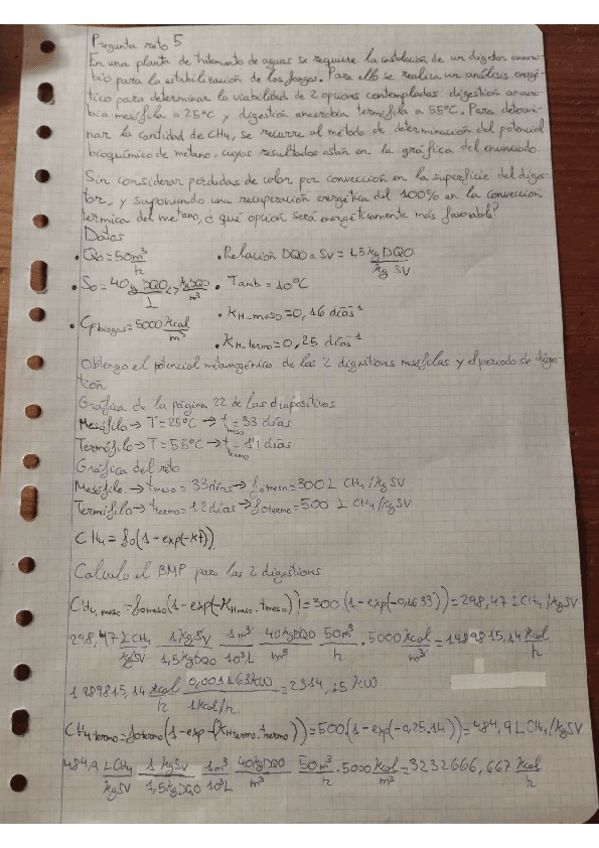 Pregunta reto 5
En una planta de tratamiento de aguas se requiere la instalación de un digestor anaero-
bio para la estabilización de los fangos. Para ello se realiza un análisis energé-
tico para determinar la viabilidad de 2 opciones contempladas: digestión anaero-
bica mesófila a 25ºC y digestión anaerobia termófila a 55ºC. Para determi-
nar la cantidad de CH4, se recurre al método de determinación del potencial
bioquímico de metano, cuyos resultados están en la gráfica del enunciado.
Sin considerar perdidas de calor por convección en la superficie del diges-
tor, y suponiendo una recuperación energética del 100% en la convección
térmica del metano, ¿qué opción será energéticamente más favorable?
Datos
• Q0 = 50 m³/h • Relación DQO a SV = 1,5 kg DQO/kg SV
• S0 = 40 g DQO/l <> kg DQO/m³ • Tamb = 10ºC
• Cp biogas = 5000 kcal/m³ • KH_meso = 0,16 días⁻¹
• KH_termo = 0,25 días⁻¹
Obtengo el potencial metanogénico de las 2 digestiones mesófilas y el periodo de diges-
tión
Gráfica de la página 22 de las diapositivas
Mesófilo → T = 25ºC → tmeso = 33 días
Termófilo → T = 55ºC → ttermo = días
Gráfica del reto
Mesófilo → tmeso = 33 días → fomeso = 300 L CH4/kg SV
Termófilo → ttermo = días → fotermo = 500 L CH4/kg SV
CH4 = fo(1-exp(-Kt))
Calculo el BMP para las 2 digestiones
CH4,meso = fomeso(1-exp(-KHmeso·tmeso)) = 300(1-exp(-0,16·33)) = 298,47 L CH4/kg SV
298,47 L CH4/kg SV · 1 kg SV/1,5 kg DQO · 1 m³/10³ L · 40 kg DQO/m³ · 50 m³/h · 5000 kcal/m³ = 1989815,14 kcal/h
1989815,14 kcal/h · 0,001163 kW/1 kcal/h = 2314,15 kW
CH4 termo = fotermo(1-exp-(KHtermo·ttermo)) = 500(1-exp(-0,25·14)) = 484,9 L CH4/kg SV
484,9 L CH4/kg SV · 1 kg SV/1,5 kg DQO · 1 m³/10³ L · 40 kg DQO/m³ · 50 m³/h · 5000 kcal/m³ = 3232666,667 kcal/h